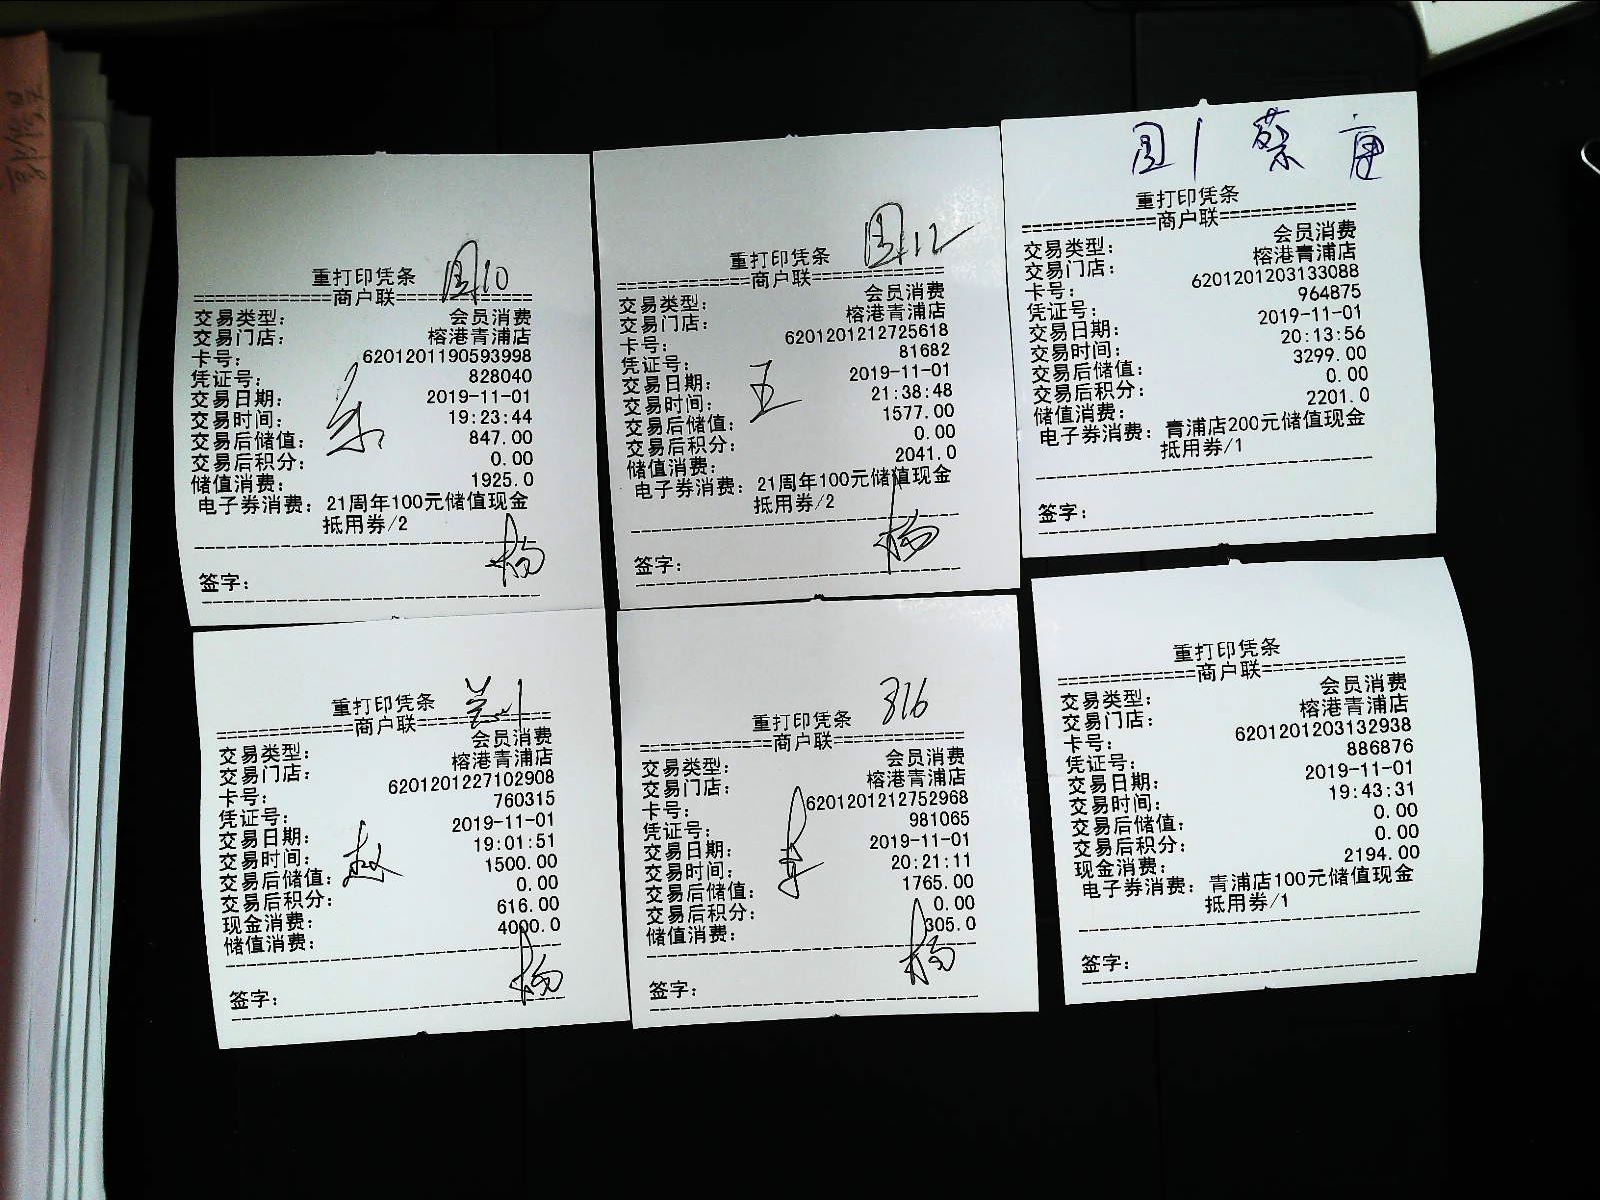 圆10
重打印凭条
============商户联============
交易类型: 会员消费
交易门店: 榕港青浦店
卡号: 6201201190593998
凭证号: 828040
交易日期: 2019-11-01
交易时间: 19:23:44
交易后储值: 847.00
交易后积分: 0.00
储值消费: 1925.0
电子券消费: 21周年100元储值现金
抵用券/2
杨
签字:
圆12
重打印凭条
============商户联============
交易类型: 会员消费
交易门店: 榕港青浦店
卡号: 6201201212725618
凭证号: 81682
交易日期: 2019-11-01
交易时间: 21:38:48
王
交易后储值: 1577.00
交易后积分: 0.00
储值消费: 2041.0
电子券消费: 21周年100元储值现金
抵用券/2
杨
签字:
圆1 蔡 唐
重打印凭条
============商户联============
交易类型: 会员消费
交易门店: 榕港青浦店
卡号: 6201201203133088
凭证号: 964875
交易日期: 2019-11-01
交易时间: 20:13:56
交易后储值: 3299.00
交易后积分: 0.00
储值消费: 2201.0
电子券消费: 青浦店200元储值现金
抵用券/1
签字:
重打印凭条
============商户联============
交易类型: 会员消费
交易门店: 榕港青浦店
卡号: 6201201227102908
凭证号: 760315
交易日期: 2019-11-01
交易时间: 19:01:51
赵
交易后储值: 1500.00
交易后积分: 0.00
现金消费: 616.00
储值消费: 4000.0
杨
签字:
316
重打印凭条
============商户联============
交易类型: 会员消费
交易门店: 榕港青浦店
卡号: 6201201212752968
凭证号: 981065
交易日期: 2019-11-01
交易时间: 20:21:11
交易后储值: 1765.00
交易后积分: 0.00
储值消费: 305.0
杨
签字:
重打印凭条
============商户联============
交易类型: 会员消费
交易门店: 榕港青浦店
卡号: 6201201203132938
凭证号: 886876
交易日期: 2019-11-01
交易时间: 19:43:31
交易后储值: 0.00
交易后积分: 0.00
现金消费: 2194.00
电子券消费: 青浦店100元储值现金
抵用券/1
签字: